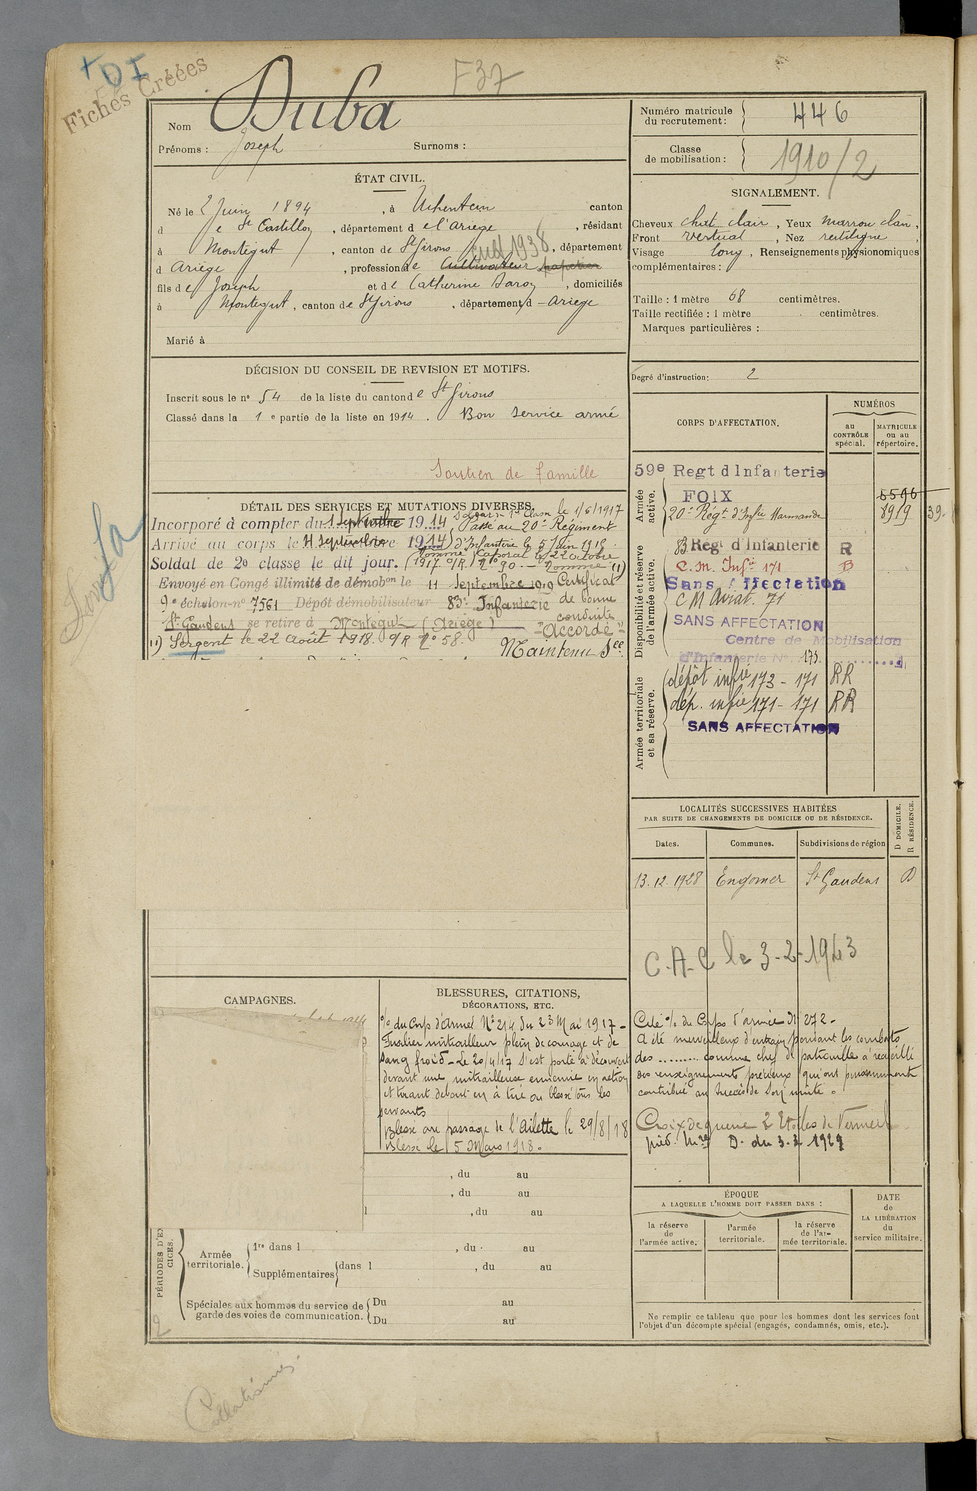 + DI
Fiches Créées
F37
Nom Duba
Prénoms : Joseph Surnoms :
Numéro matricule du recrutement : 446
Classe de mobilisation : 1910/2
ÉTAT CIVIL.
Né le 2 Juin 1894, à Uchentein canton
d e St Castillon, département d e l'Ariège, résidant
à Montégut, canton de St Girons, département
d Ariège, profession de Cultivateur
sud 1938
fils de Joseph et de Catherine, domiciliés
à Montegut, canton de St Girons, département d - Ariège
Marié à
SIGNALEMENT.
Cheveux chat clair, Yeux marron clair,
Front vertical, Nez rectiligne,
Visage long, Renseignements physionomiques
complémentaires :
Taille : 1 mètre 68 centimètres.
Taille rectifiée : 1 mètre centimètres.
Marques particulières :
Degré d'instruction: 2
DÉCISION DU CONSEIL DE REVISION ET MOTIFS.
Inscrit sous le no 54 de la liste du canton de St Girons
Classé dans la 1 e partie de la liste en 1914. Bon service armé
Soutien de famille
DÉTAIL DES SERVICES ET MUTATIONS DIVERSES.
Incorporé à compter du 1 Septembre 1914, Classe le 1/6/1917
Passé au 20e Régiment
Arrivé au corps le 11 Septembre 1914 d'Infanterie le 5 Juin 1915
Soldat de 2e classe le dit jour. Nommé Caporal le 22 octobre
1917 No 90. - Nommé (1)
Envoyé en Congé illimité de démobon le 11 Septembre 1919 Certificat
9e échelon no 7561 Dépôt démobilisateur 83e Infanterie de bonne
St Gaudens se retire à Montegut (Ariège) conduite
"Accordé"
(1) Sergent le 22 Août 1918. No 58.
Maintenu
CORPS D'AFFECTATION.
NUMÉROS
au CONTRÔLE spécial.
MATRICULE ou au répertoire.
Armée active.
59e Regt d'Infanterie
FOIX
5596
20e Régt d'Infie Marmande 8919 39-
Disponibilité et réserve de l'armée active.
83 Regt d'Infanterie R
C.M. Infie 171 B
Sans Affectation
CM Aviat. 71
SANS AFFECTATION
Centre de Mobilisation
d'Infanterie No. 173
Armée territoriale et sa réserve.
dépôt infie 173 - 171 RR
dép. infie 171 - 171 RR
SANS AFFECTATION
LOCALITÉS SUCCESSIVES HABITÉES
PAR SUITE DE CHANGEMENTS DE DOMICILE OU DE RÉSIDENCE.
Dates. Communes. Subdivisions de région
D DOMICILE.
R RÉSIDENCE.
13.12.1928 Engomer St Gaudens D
C.A.C le 3-2-1943
CAMPAGNES.
BLESSURES, CITATIONS,
DÉCORATIONS, ETC.
% du Corps d'Armée No 214 du 23 Mai 1917 -
Fusilier mitrailleur plein de courage et de
sang froid - Le 20/4/17 s'est porté à découvert
devant une mitrailleuse ennemie en action
et tirant debout en a tué ou blessé tous les
servants
Blessé au passage de l'Ailette le 29/8/18
Blessé le 5 Mars 1918.
Cité % du Corps d'armée No 272 -
A été merveilleux d'entrain pendant les combats
des ......... comme chef de patrouilles a recueilli
des renseignements précieux qui ont puissamment
contribué au succès de son unité.
Croix de guerre 2 Etoiles de Vermeil
D. du 3.2 1929
, du au
, du au
, du au
PÉRIODES D'EX CICES.
Armée territoriale. 1re dans l , du au
Supplémentaires dans l , du au
Spéciales aux hommes du service de garde des voies de communication. Du au
Du au
ÉPOQUE
A LAQUELLE L'HOMME DOIT PASSER DANS :
la réserve de l'armée active.
l'armée territoriale.
la réserve de l'armée territoriale.
DATE de LA LIBÉRATION du service militaire.
Ne remplir ce tableau que pour les hommes dont les services font
l'objet d'un décompte spécial (engagés, condamnés, omis, etc.).
2